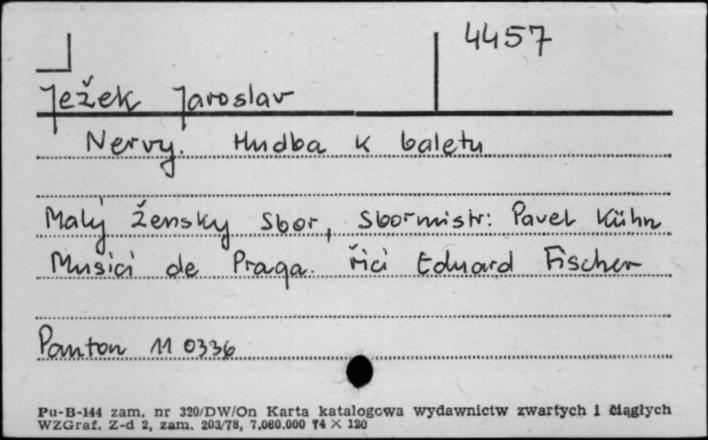 4457
Ježek Jaroslav
Nervy. Hudba k baletu
Malý žensky sbor, sbormistr: Pavel Kühn
Musici de Praga. řící Eduard Fischer
Panton 11 0336
Pu-B-144 zam. nr 320/DW/On Karta katalogowa wydawnictw zwartych i ciągłych
WZGraf. Z-d 2, zam. 203/78, 7.080.000 74 × 120